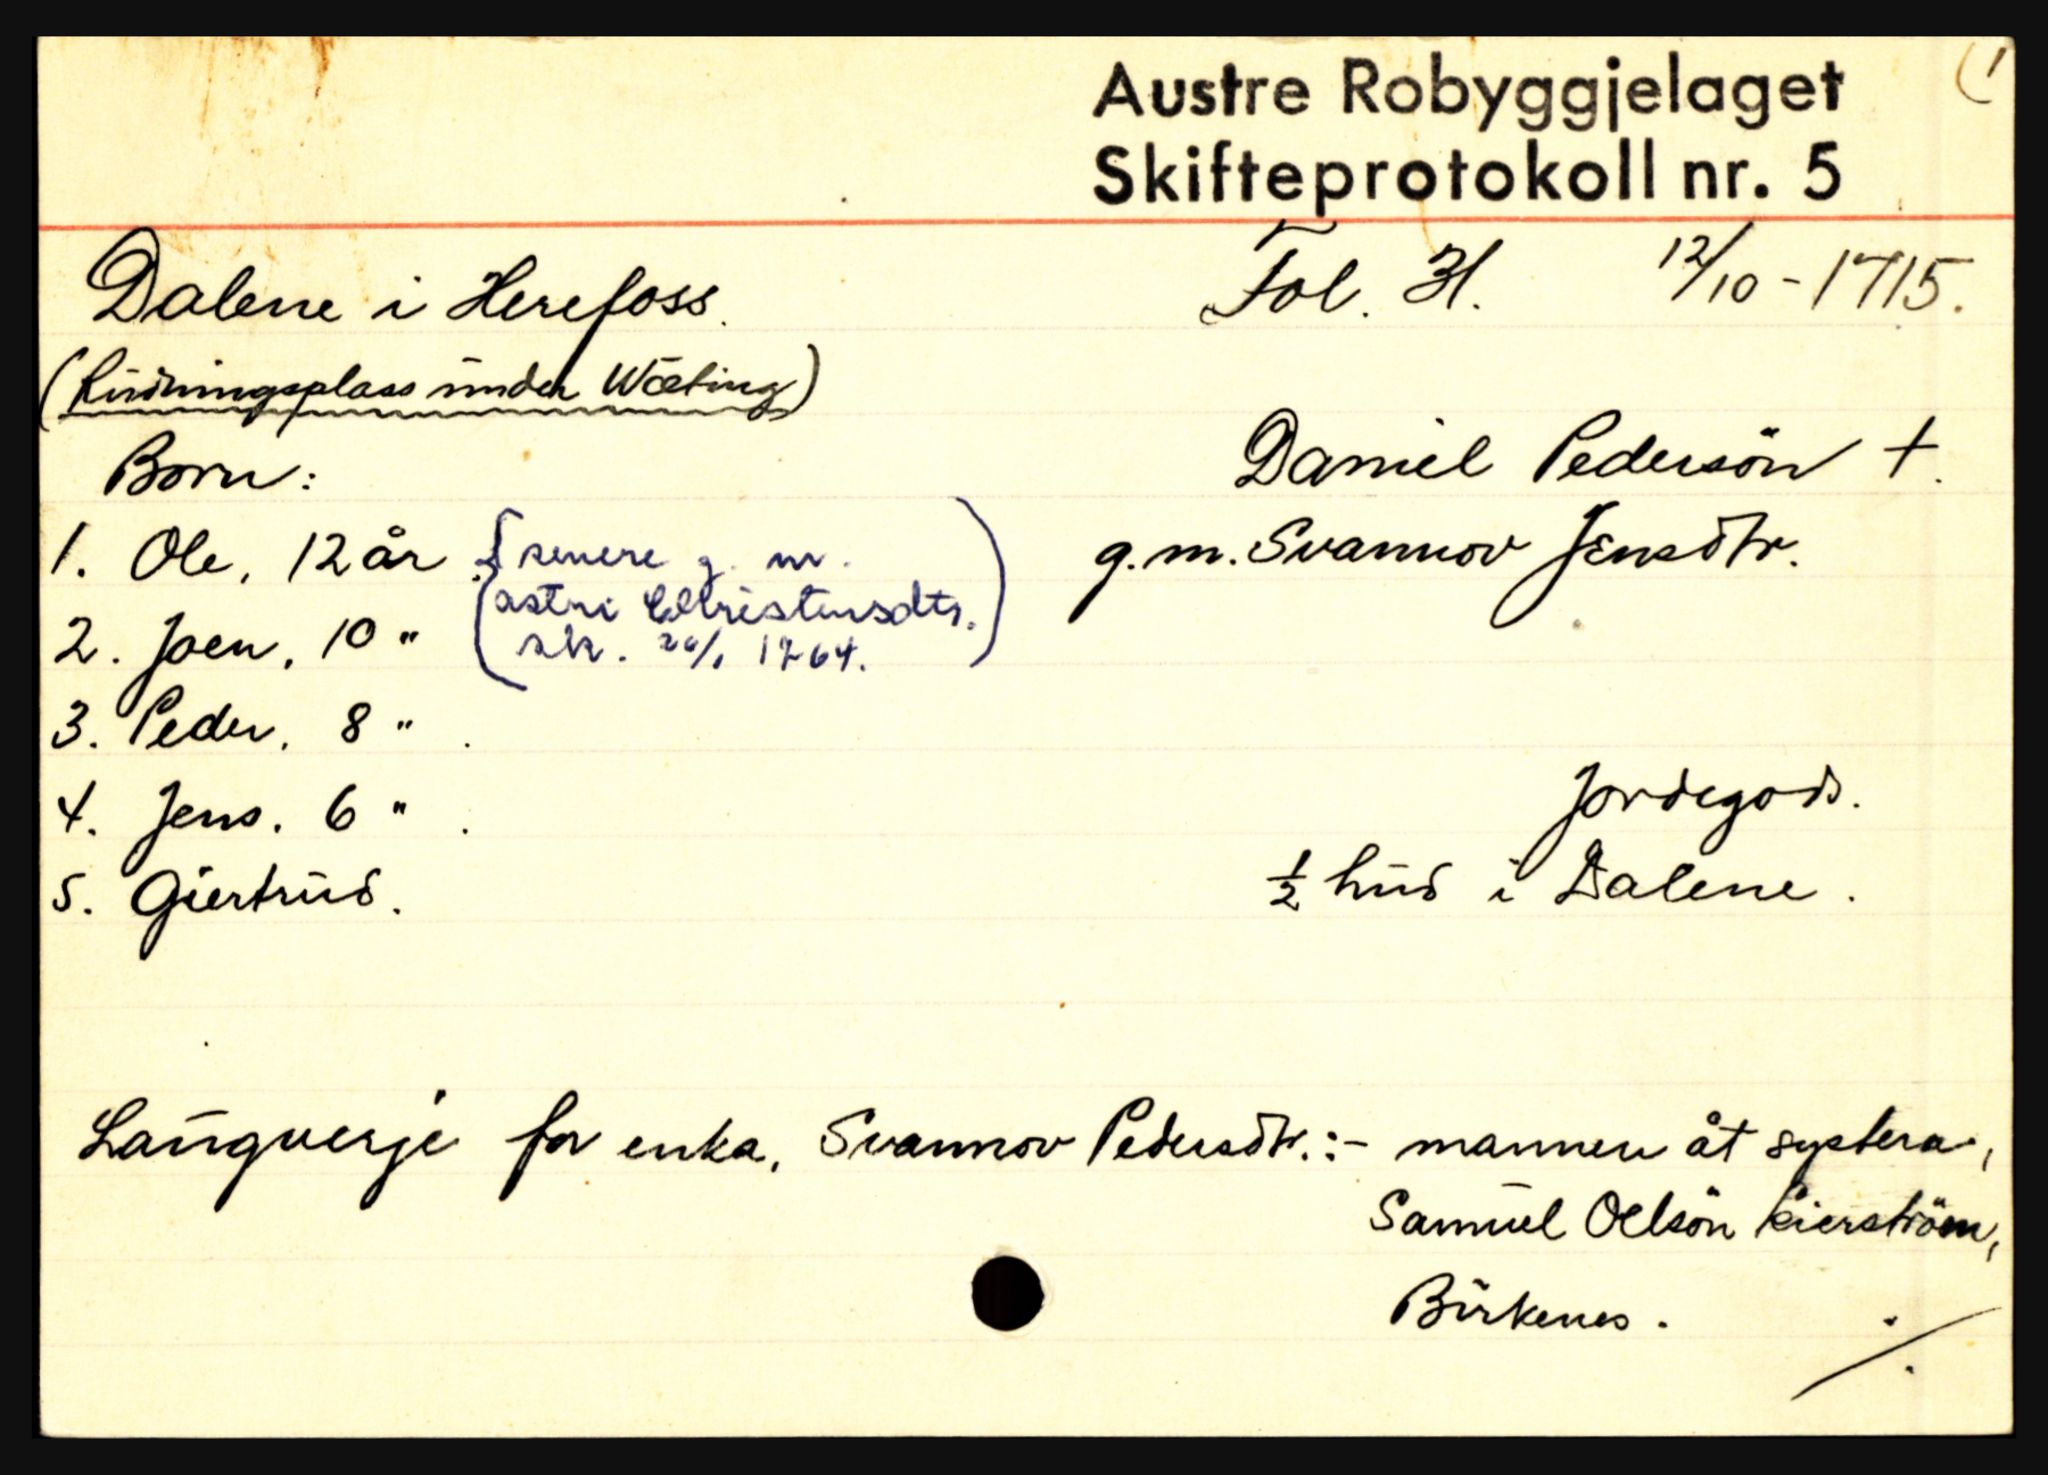 (1
Austre Robyggjelaget
Skifteprotokoll nr. 5
Dalene i Herefoss. Fol. 31. 12/10 - 1715.
(Rudningsplass under Wæting)
Born: Daniel Pedersön †.
1. Ole, 12 år. (senere g. m. g. m. Svannov Jensdtr.
astri Christensdtr.
2. Joen, 10 " sk. 26/1 1764.)
3. Peder, 8 " .
4. Jens. 6 " . Jordegods.
5. Giertrud. ½ hud i Dalene.
Laugverje for enka, Svannov Pedersdtr.:- mannen åt systera,
Samuel Oelsön Kierström,
Birkenes.